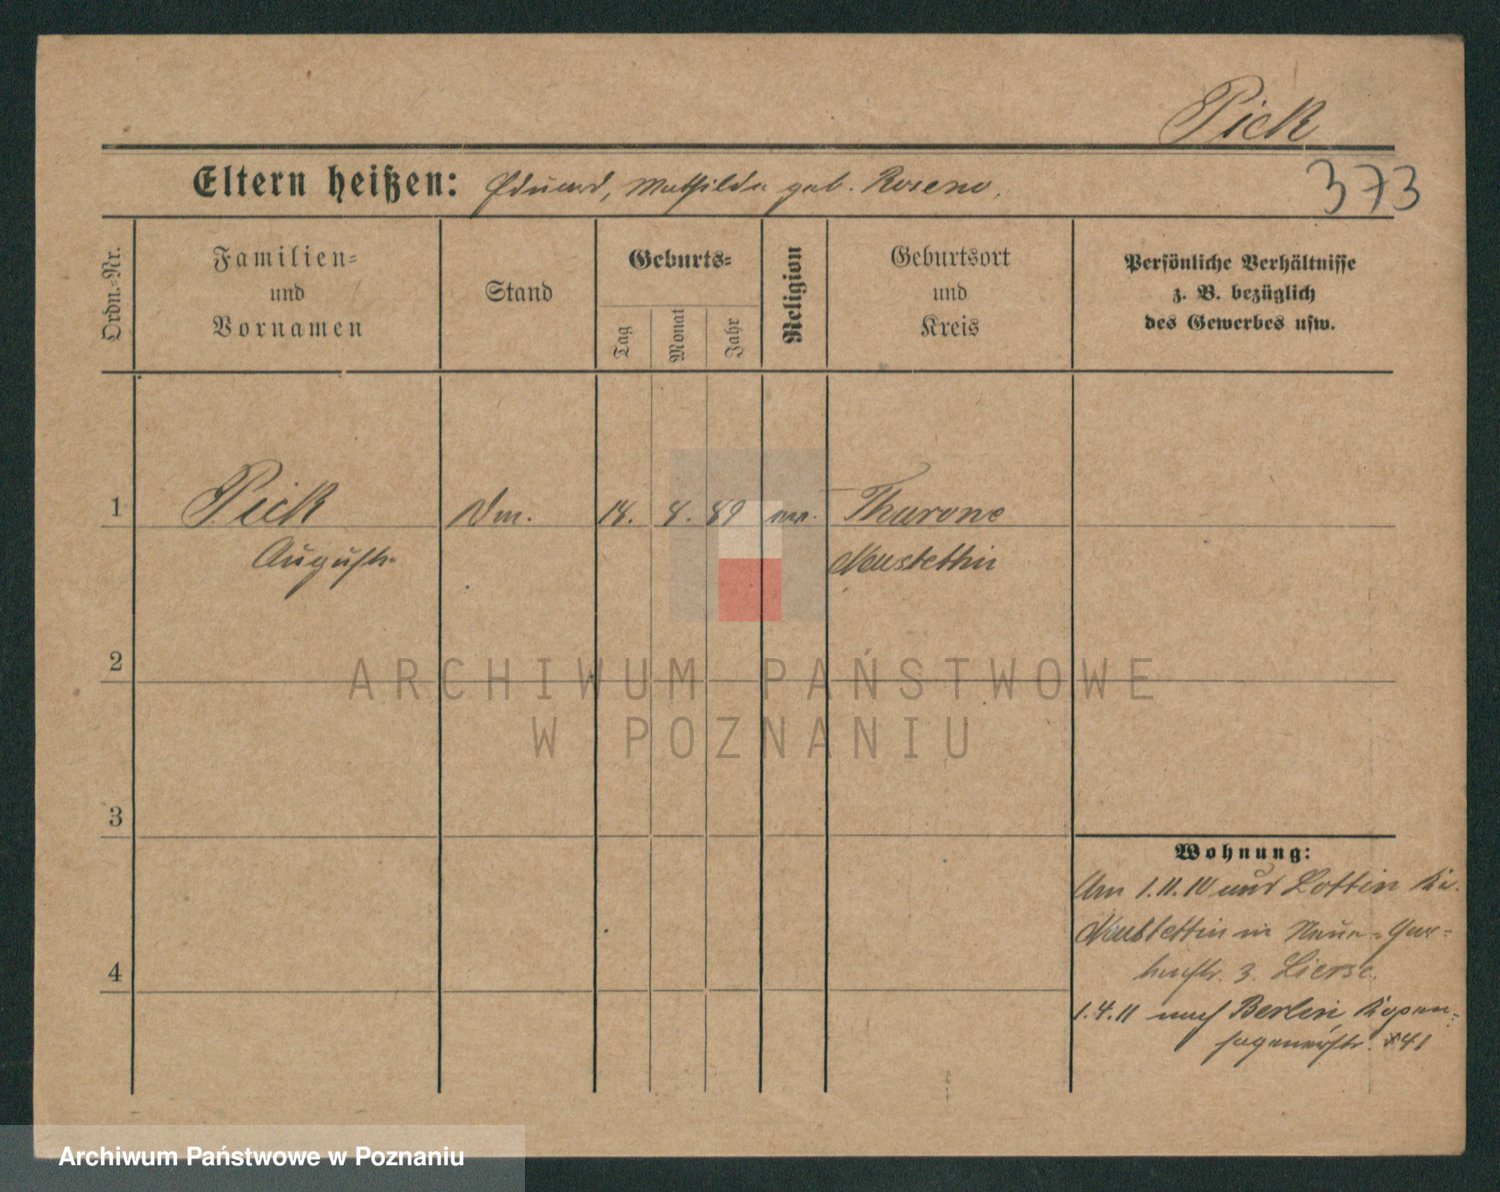 Pick
Eltern heißen: Eduard, Mathilde geb. Roseno.
373
Ordn.-Nr.
Familien-
und
Vornamen
Stand
Geburts-
Tag
Monat
Jahr
Religion
Geburtsort
und
Kreis
Persönliche Verhältnisse
z. B. bezüglich
des Gewerbes usw.
1
Pick
18. 89
Auguste
Neustettin
2
ARCHIWUM PAŃSTWOWE
W POZNANIU
3
Wohnung:
Am 1.11.10 aus Lottin Kr.
Neustettin in Neue-Gar-
tenstr. 3
4
1.4.11 nach Berlin Kopen-
hagenerstr. 41
Archiwum Państwowe w Poznaniu